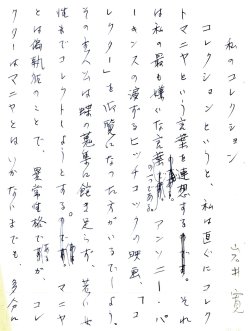 私のコレクション
岩井寛
コレクションというと、私は直ぐにコレク
トマニヤという言葉を連想する。それ
は私の最も嫌いな言葉の一つである。アンソニー・パ
ーキンスの演ずるヒッチコックの映画、「コ
レクター」を御覧になった方がいるでしょう。
その主人公は蝶の蒐集に飽き足らず、若い女
性までコレクトしようとする。マニヤ
とは偏執狂のことで、異常性格であるが、コレ
クターはマニヤとは行かないまでも、多分に